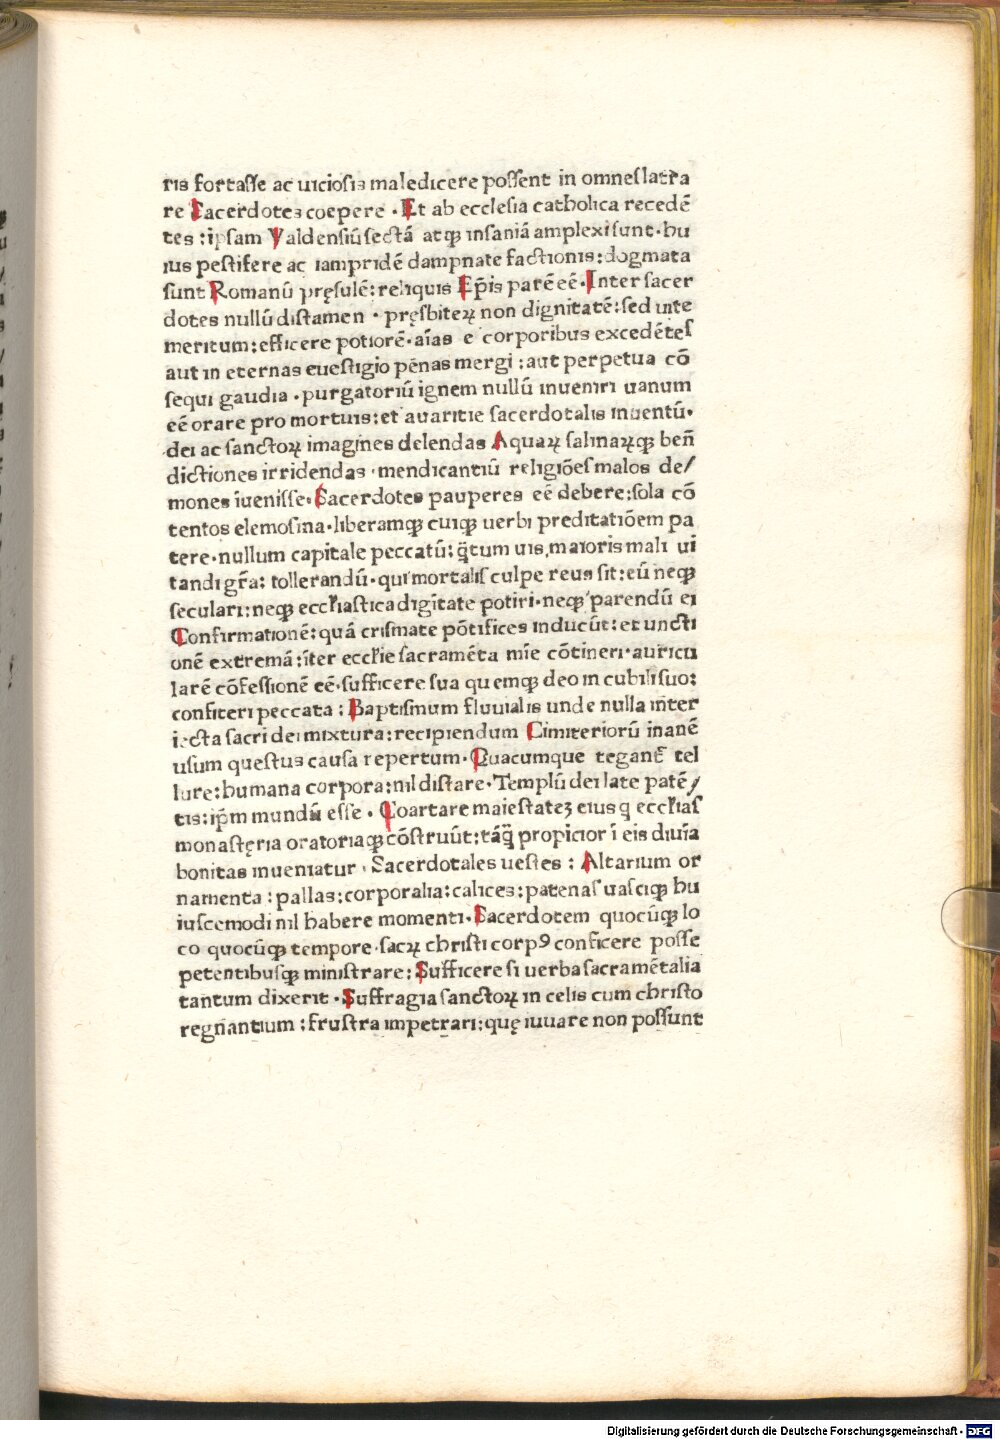 ris fortasse ac uiciosis maledicere possent in omnes latra
re Sacerdotes coepere · Et ab ecclesia catholica recedē
tes : ipsam Valdensiū sectā atqꝫ insaniā amplexi sunt · hu
ius pestifere ac iampridē dampnate factionis : dogmata
sunt Romanū pręsulē : reliquis Ep̄is parē eē · Inter sacer
dotes nullū distamen · pręsbiteꝝ non dignitatē : sed uite
meritum : efficere potiorē · aīas e corporibus excedētes
aut in eternas euestigio pēnas mergi : aut perpetua cō
sequi gaudia · purgatoriū ignem nullū inueniri uanum
eē orare pro mortuis : et auaritie sacerdotalis inuentū ·
dei ac sanctoꝝ imagines delendas Aquaꝝ palmaꝝqꝫ ben̄
dictiones irridendas · mendicantiū religiōes malos de/
mones īuenisse · Sacerdotes pauperes eē debere : sola cō
tentos elemosina · liberamqꝫ cuiqꝫ uerbi preditatiōem pa
tere · nullum capitale peccatū : q̄tum uis, maioris mali ui
tandi gr̄a : tollerandū · qui mortalis culpe reus sit : eū neqꝫ
seculari : neqꝫ eccl̄iastica digītate potiri · neqꝫ parendū ei
Confirmationē : quā crismate pōtifices inducūt : et uncti
onē extremā : īter eccl̄ie sacramēta mīe cōtineri · auricu
larē cōfessionē eē · sufficere sua quemqꝫ deo in cubili suo :
confiteri peccata : Baptismum fluuialis unde nulla inter
iecta sacri dei mixtura : recipiendum Cimiteriorū inanē
usum questus causa repertum · Quacumque tegant̄ tel
lure : humana corpora : nil distare · Templū dei late patē/
tis : ip̄m mundū esse · Coartare maiestateꝫ eius q eccl̄ias
monastęria oratoriaqꝫ cōstruūt : tāq̄ propicior ī eis diuīa
bonitas inueniatur · Sacerdotales uestes : Altarium or
namenta : pallas : corporalia : calices : patenas uasciqꝫ hu
iuscemodi nil habere momenti · Sacerdotem quocūqꝫ lo
co quocūqꝫ tempore · sacꝝ christi corpꝰ conficere posse
petentibusqꝫ ministrare : Sufficere si uerba sacramētalia
tantum dixerit · Suffragia sanctoꝝ in celis cum christo
regnantium : frustra impetrari : quę iuuare non possunt
Digitalisierung gefördert durch die Deutsche Forschungsgemeinschaft - DFG